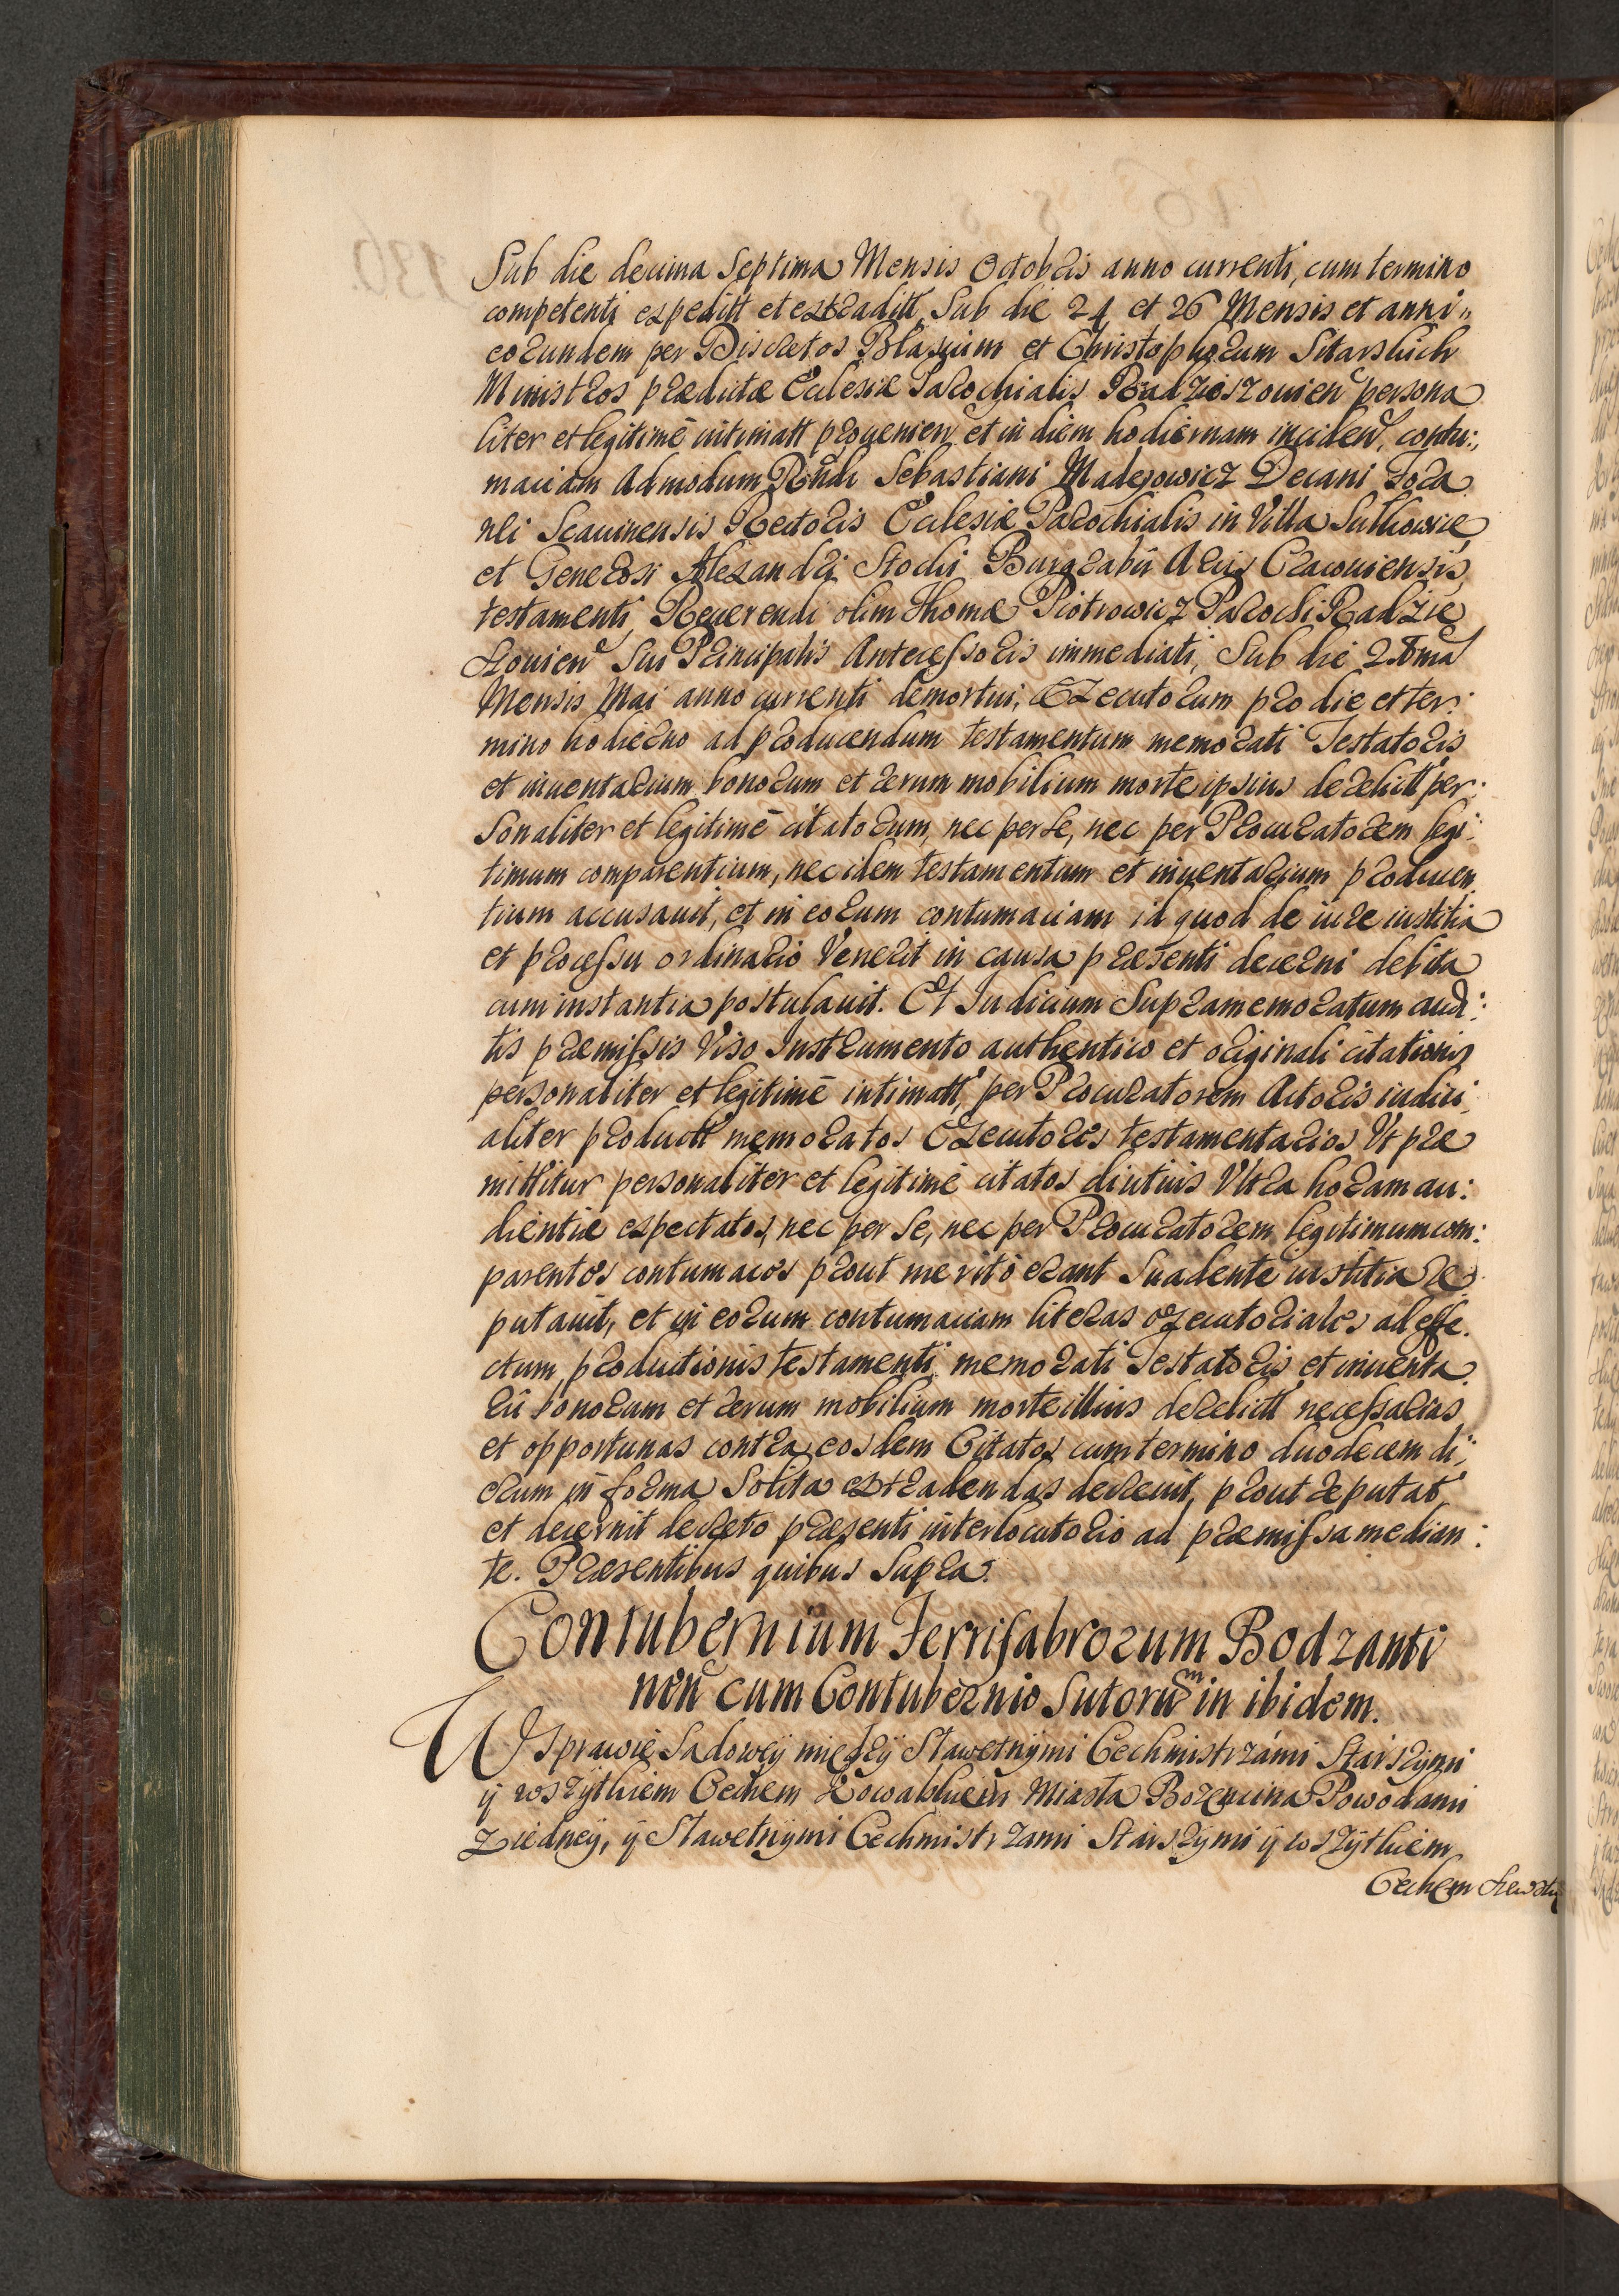 Sub die decima Septima Mensis Octobris anno currenti, cum termino
competenti expeditt et extraditt, Sub die 24 et 26 Mensis et anni
eorundem per Discretos Blasium et Christophorum Sitarskich
Ministros prædictæ Ecclesiæ Parochialis Radzieszouien persona
liter et legitimè intimatt prouenien, et in diem hodiernam inciden, contu:
maciam Admodum Rñdi Sebastiani Madejowicz Decani Fora
nei Scauinensis Rectoris Ecclesiæ Parochialis in Villa Sułkowice
et Generosi Alexandri Stocki Burgrabij Arcis Cracouiensis,
testamenti Reuerendi olim Thomæ Piotrowicz Parochi Radzie
szouien Sui Principalis Antecessoris immediati, Sub die
Mensis Mai anno currenti demortui, Executorum pro die et ter:
mino hodierno ad producendum testamentum memorati Testatoris
et inuentarium bonorum et rerum mobilium morte ipsius derelictt per:
sonaliter et legitimè citatorum, nec per se, nec per Procuratorem legi:
timum comparentium, nec idem testamentum et inuentarium producen
tium accusauit, et in eorum contumaciam id quod de iure iustitia
et processu ordinario Venerit in causa præsenti decerni debita
cum instantia postulauit. Et Iudicium Supramemoratum audi:
tis præmissis Viso Instrumento authentico et originali citationis
personaliter et legitimè intimatt, per Procuratorem Actoris iudici
aliter productt memoratos Executores testamentarios Vt præ
mittitur personaliter et legitimè citatos diutius Vltra horam au:
dientiæ expectatos, nec per se, nec per Procuratorem legitimum com:
parentes contumaces prout meritò erant Suadente iustitia re
putauit, et in eorum contumaciam literas executoriales ad effe
ctum productionis testamenti memorati Testatoris et inuenta
rij bonorum et rerum mobilium morte illius derelictt necessarias
et opportunas contra eosdem Citatos cum termino duodecem di:
erum in forma Solita extradendas decreuit, prout reputat,
et decernit decreto præsenti interlocutorio ad præmissa median:
te. Præsentibus quibus Supra.
Contubernium Ferrifabrorum Bodzanti
nen cum Contubernio Sutorum in ibidem.
W Sprawie Sadowey między Sławetnÿmi Cechmistrzámi Starszÿmi
ÿ wszÿtkiem Cechem Kowalskiem Miasta Bożęcina Powodami
z iedneÿ, ÿ Sławetnÿmi Cechmistrzami Starszÿmi ÿ wszÿtkiem
Cechem